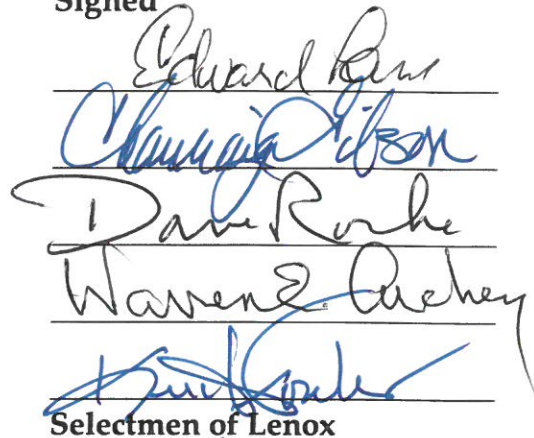 Signed
Edward Lane
Channing Gibson
Dave Roche
Warren E. Archey
Selectmen of Lenox